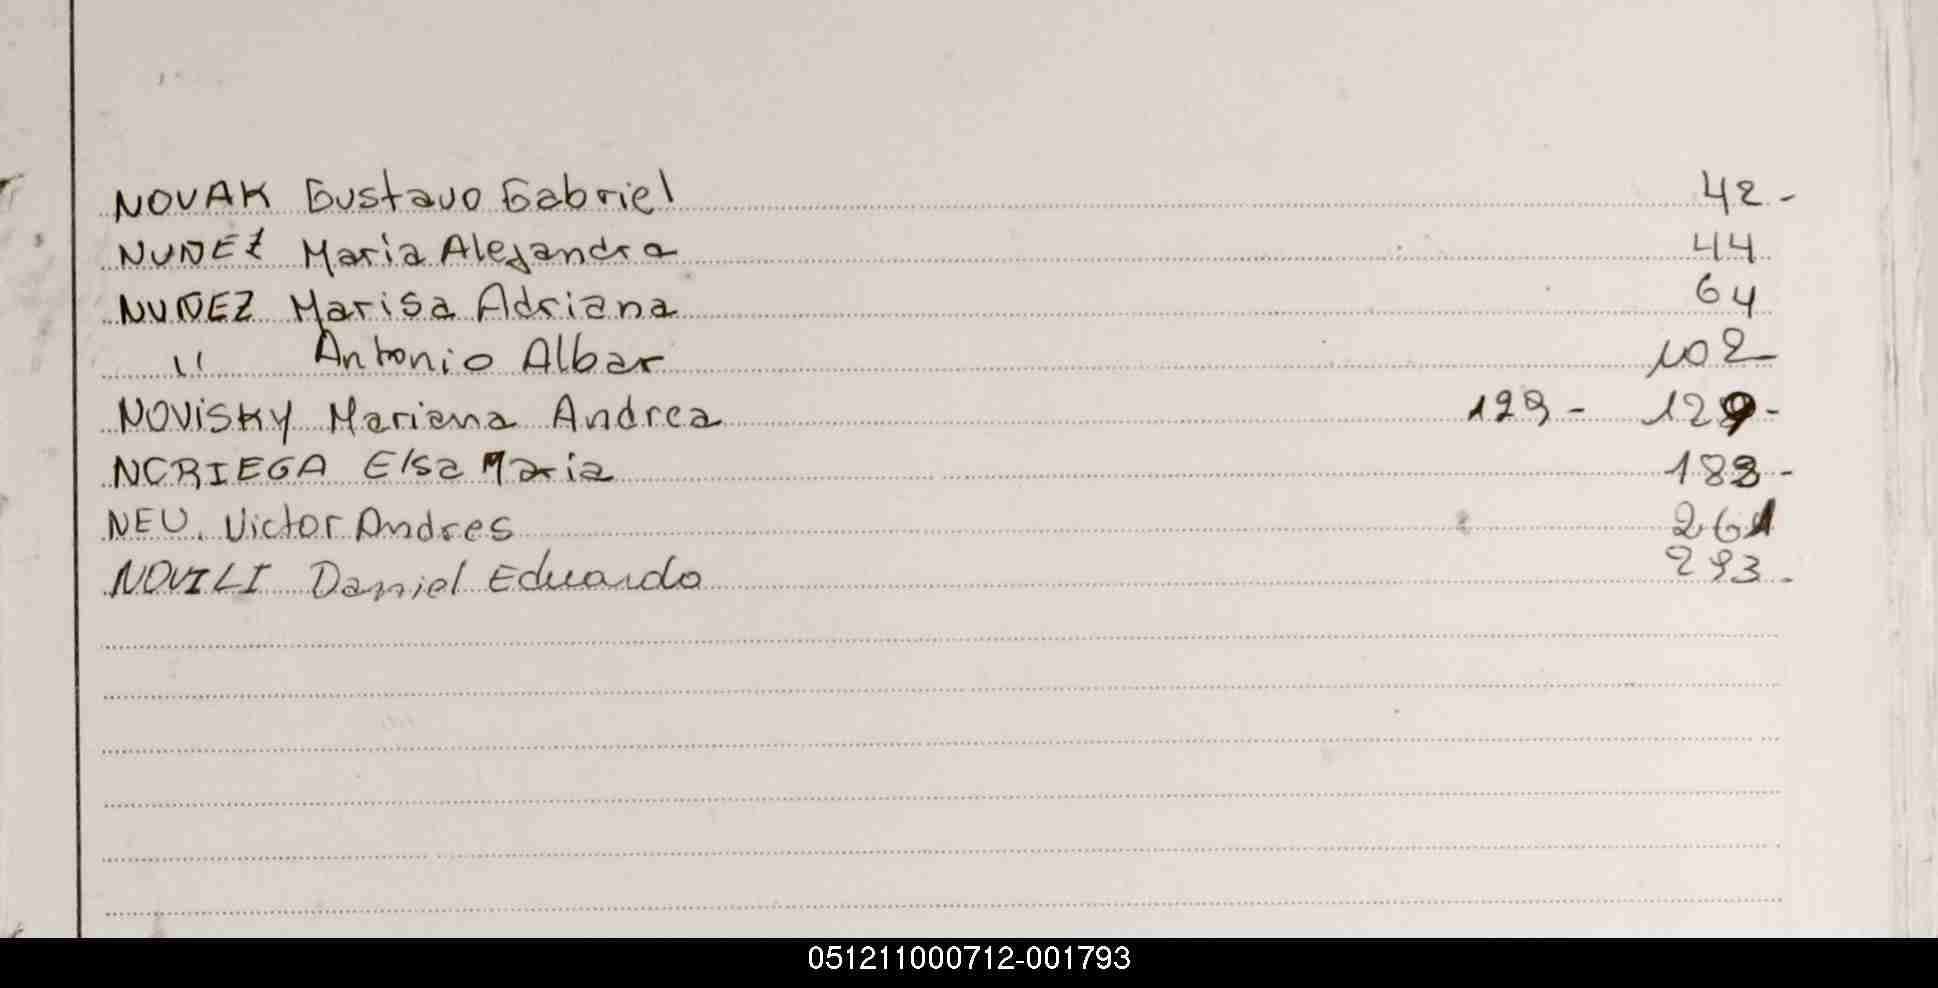 NOVAK Gustavo Gabriel 42-
NUÑEZ Maria Alejandra 44
NUÑEZ Marisa Adriana 64
" Antonio Albar 102
NOVISKY Mariana Andrea 129- 129-
NORIEGA Elsa Maria 188-
NEU. Victor Andres 261
NOVILI Daniel Eduardo 293.
051211000712-001793